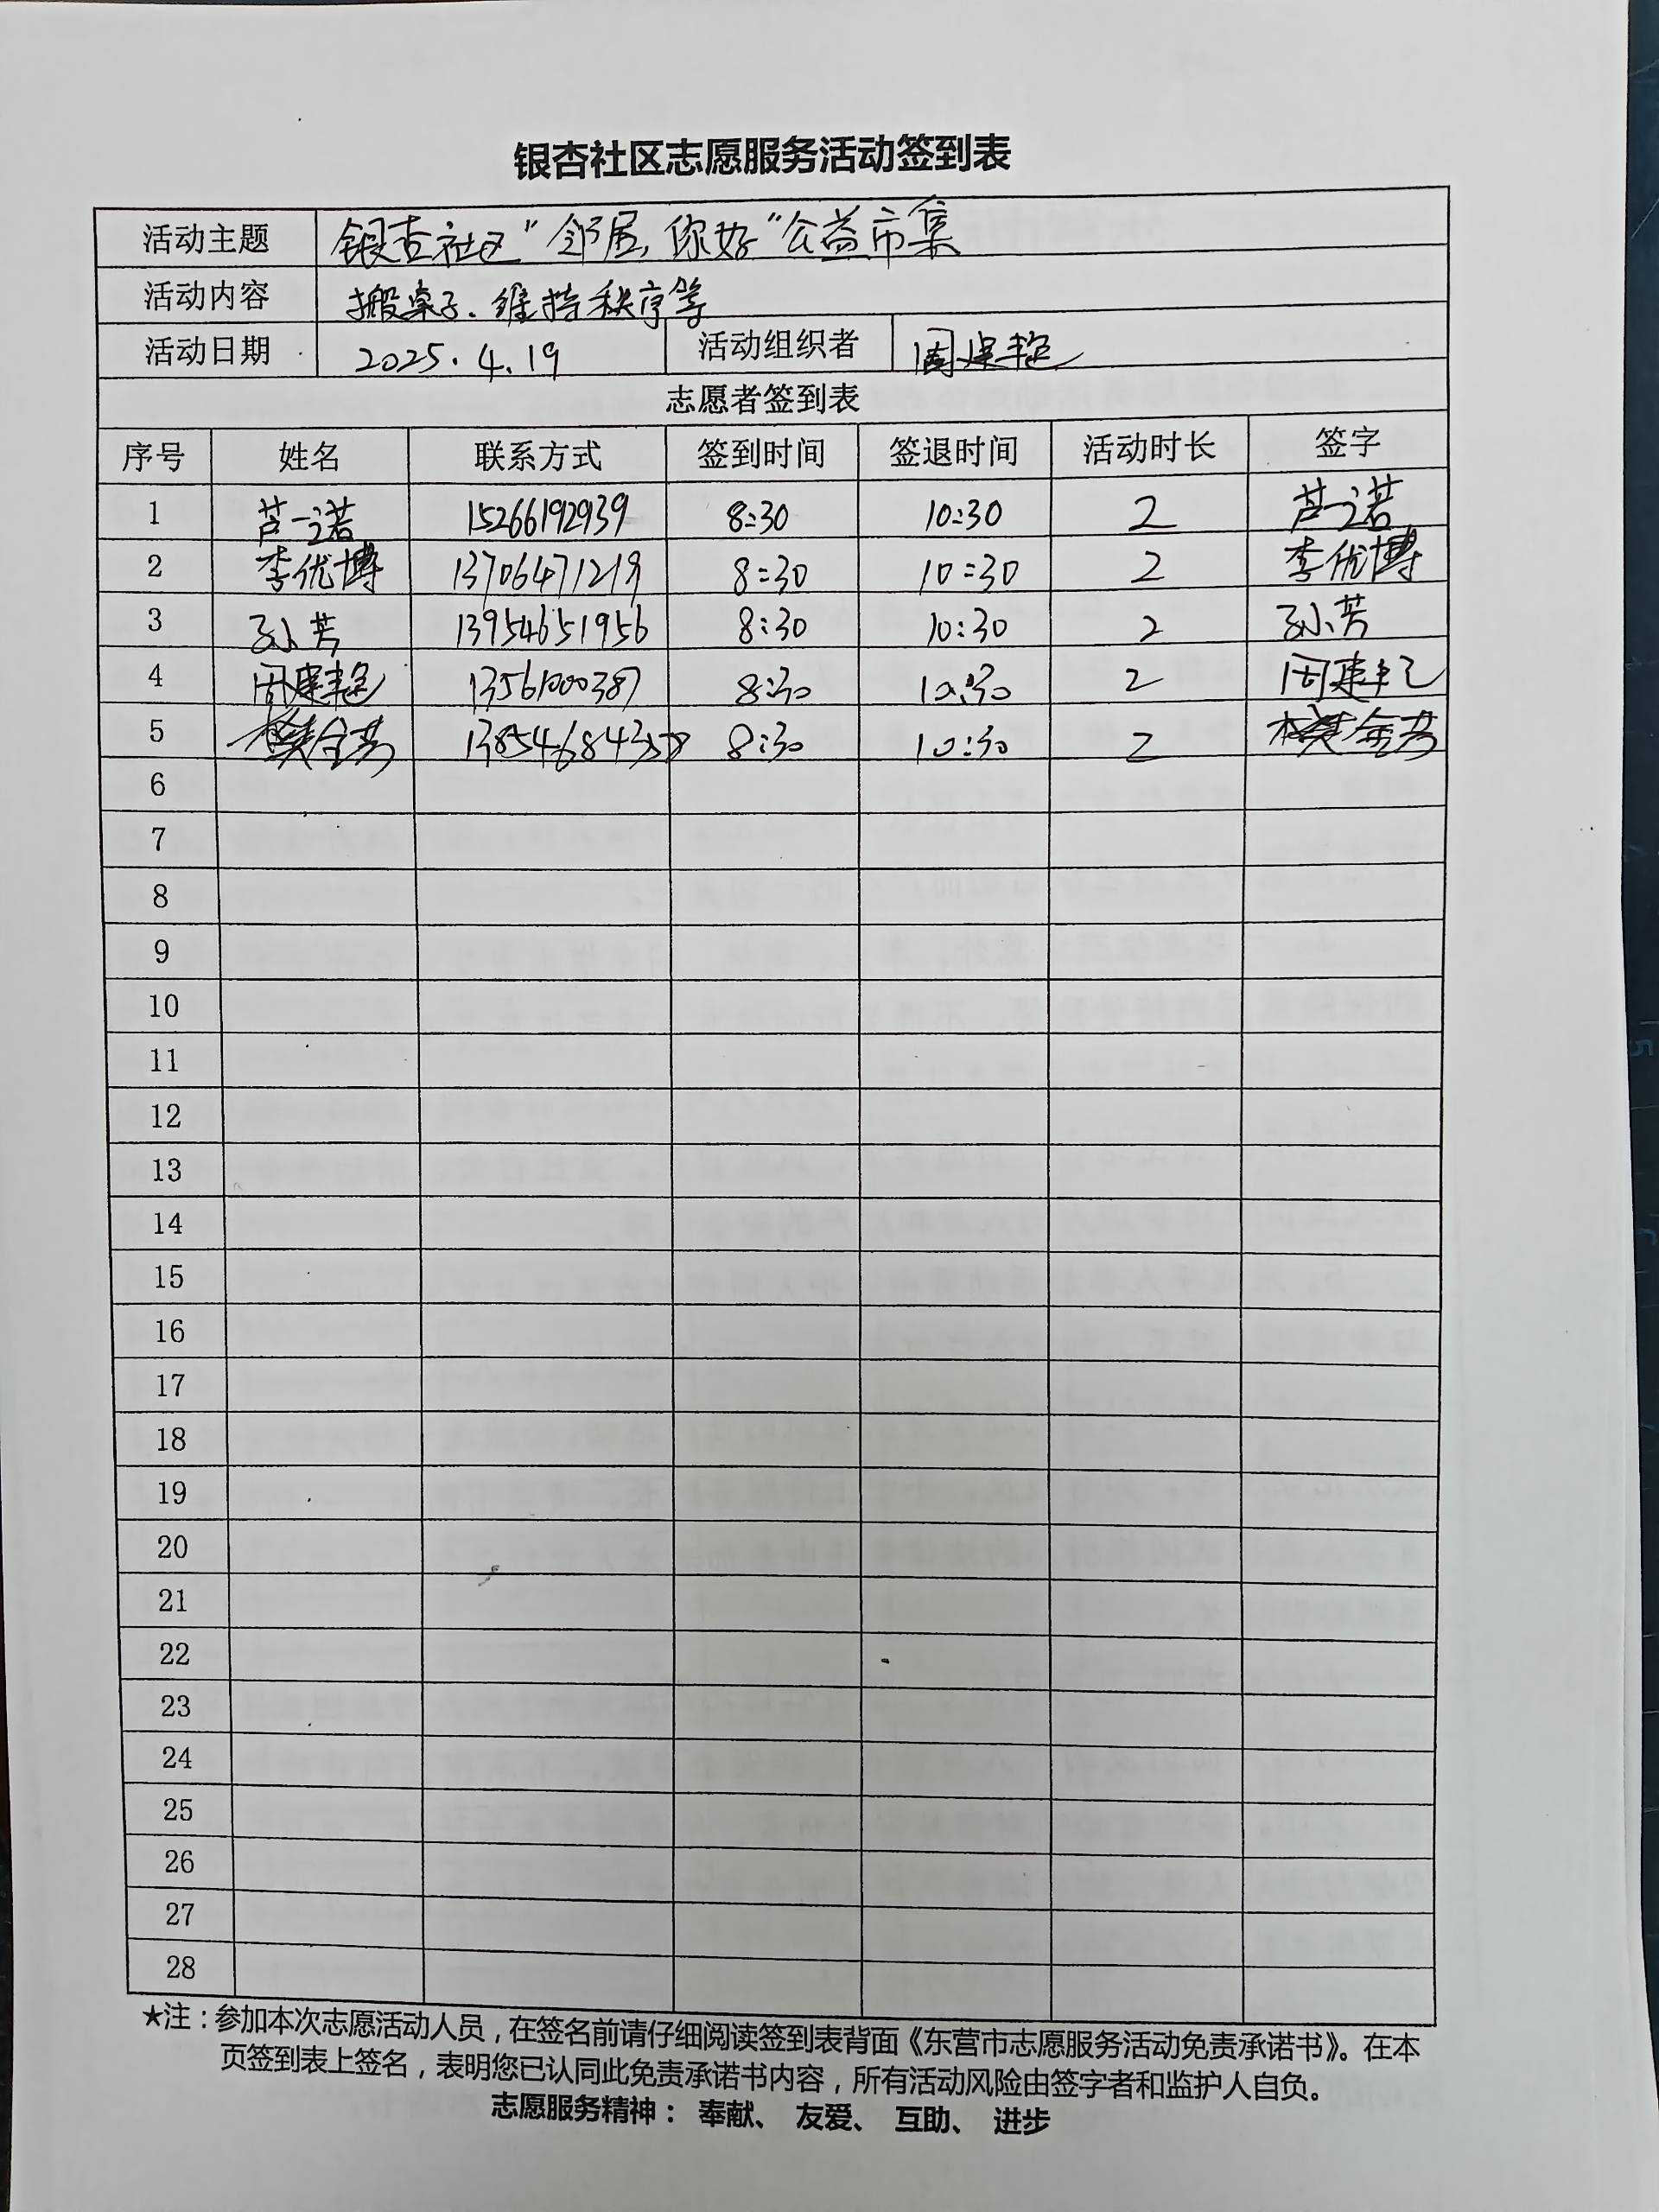 银杏社区志愿服务活动签到表
活动主题 银杏社区“邻居,你好”公益市集
活动内容 搬桌子、维持秩序等
活动日期 2025.4.19 活动组织者 周建艳
志愿者签到表
序号 姓名 联系方式 签到时间 签退时间 活动时长 签字
1 芦一诺 15266192939 8:30 10:30 2 芦一诺
2 李优博 13706471219 8:30 10:30 2 李优博
3 孙芳 13954651956 8:30 10:30 2 孙芳
4 周建艳 13561000387 8:30 10:30 2 周建艳
5 樊金芳 8:30 10:30 2 樊金芳
6
7
8
9
10
11
12
13
14
15
16
17
18
19
20
21
22
23
24
25
26
27
28
★注：参加本次志愿活动人员，在签名前请仔细阅读签到表背面《东营市志愿服务活动免责承诺书》。在本
页签到表上签名，表明您已认同此免责承诺书内容，所有活动风险由签字者和监护人自负。
志愿服务精神： 奉献、 友爱、 互助、 进步